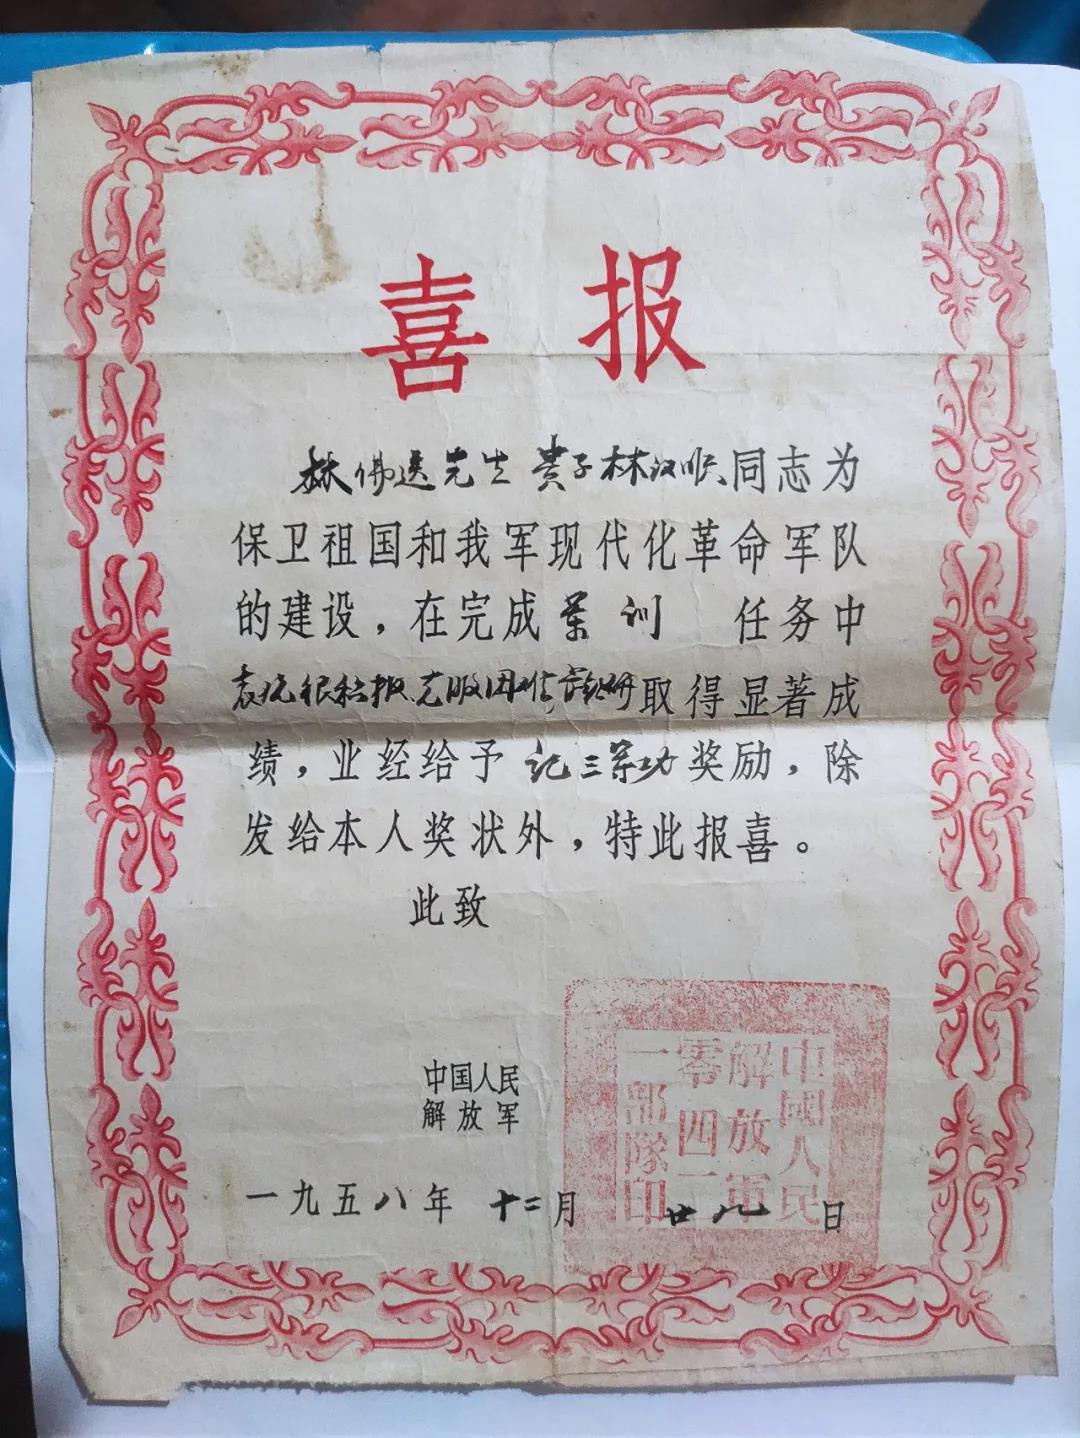 喜报
林佛送先生贵子林汉顺同志为
保卫祖国和我军现代化革命军队
的建设，在完成军训任务中
表现很积极克服困难，钻研取得显著成
绩，业经给予记三等功奖励，除
发给本人奖状外，特此报喜。
此致
中国人民
解放军
中國人民
解放軍
零四一
一部隊印
一九五八年十二月廿九日